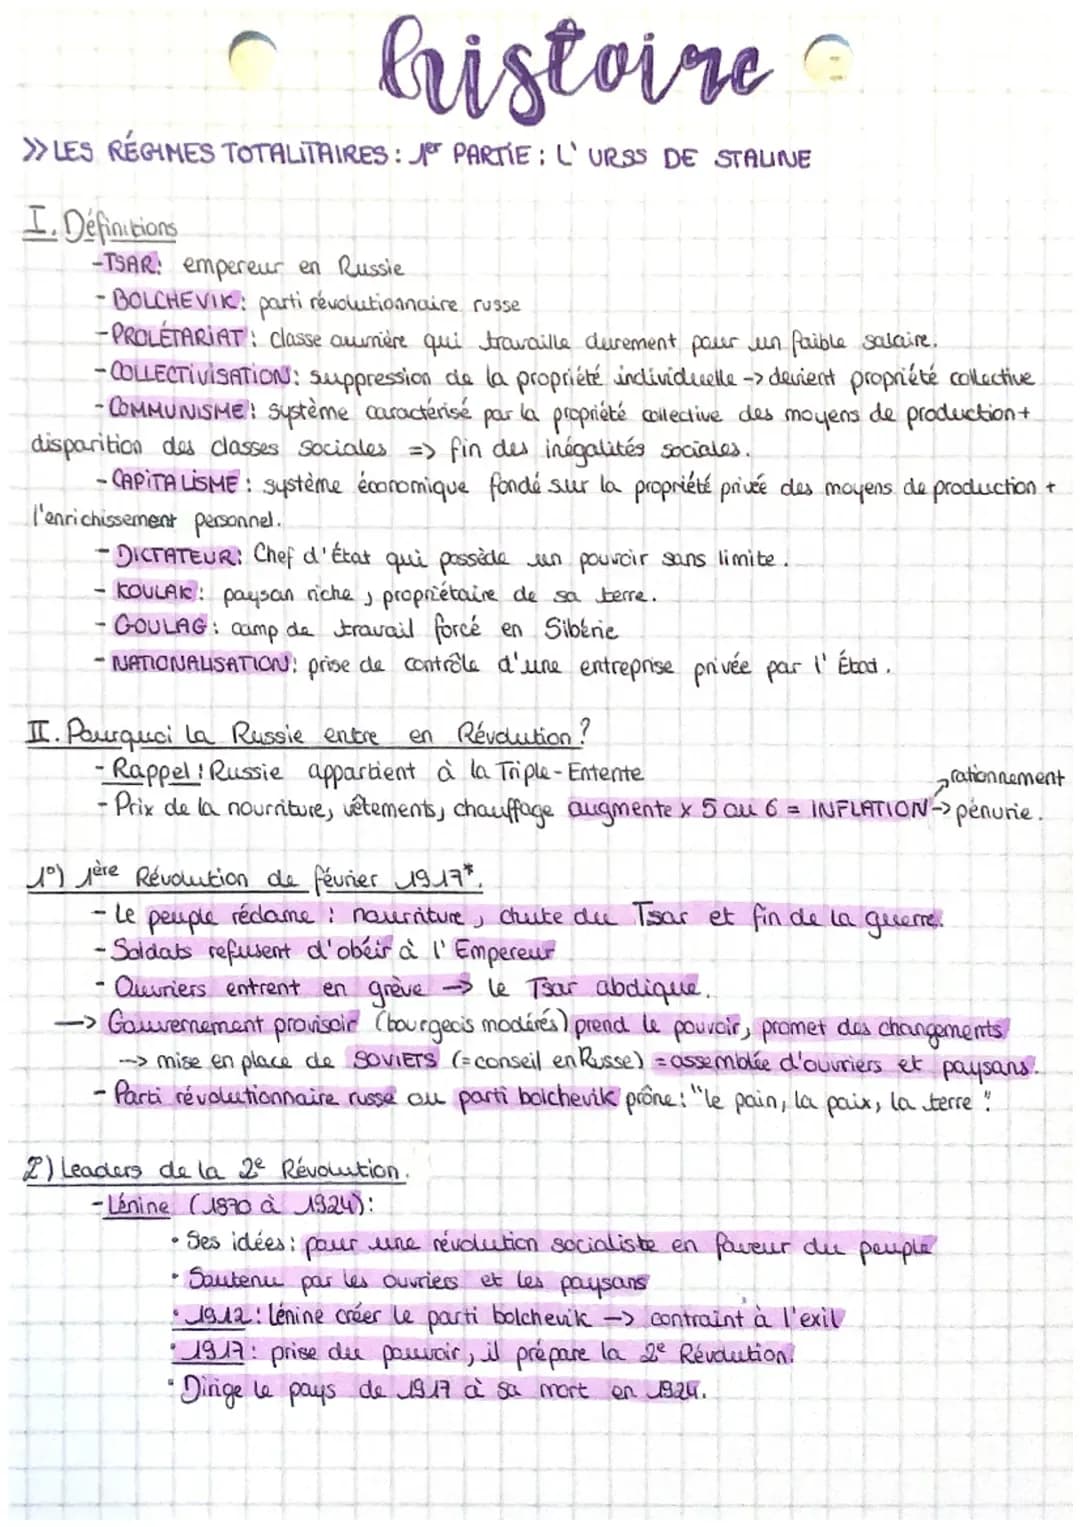 histoire
>> LES RÉGIMES TOTALITAIRES : 1er PARTIE : L' URSS DE STALINE
I. Définitions
-TSAR: empereur en Russie
- BOLCHEVIK: parti révolutionnaire russe
- PROLÉTARIAT: classe ouvrière qui travaille durement pour un faible salaire.
- COLLECTIVISATION: suppression de la propriété individuelle -> devient propriété collective
- COMMUNISME: système caractérisé par la propriété collective des moyens de production +
disparition des classes sociales => fin des inégalités sociales.
- CAPITALISME: système économique fondé sur la propriété privée des moyens de production +
l'enrichissement personnel.
- DICTATEUR: Chef d'État qui possède un pouvoir sans limite.
- KOULAK: paysan riche, propriétaire de sa terre.
- GOULAG: camp de travail forcé en Sibérie
- NATIONALISATION: prise de contrôle d'une entreprise privée par l'État.
II. Pourquoi la Russie entre en Révolution?
- Rappel: Russie appartient à la Triple-Entente
- Prix de la nourriture, vêtements, chauffage augmente x 5 ou 6 = INFLATION -> pénurie.
-> rationnement
1°) 1ère Révolution de février 1917*.
- Le peuple réclame : nourriture, chute du Tsar et fin de la guerre.
- Soldats refusent d'obéir à l'Empereur
- Ouvriers entrent en grève -> le Tsar abdique.
-> Gouvernement provisoir (bourgeois modérés) prend le pouvoir, promet des changements
--> mise en place de SOVIETS (=conseil en Russe) = assemblée d'ouvriers et paysans.
- Parti révolutionnaire russe ou parti bolchevik prône: "le pain, la paix, la terre".
2) Leaders de la 2e Révolution.
- Lénine (1870 à 1924):
• Ses idées: pour une révolution socialiste en faveur du peuple
• Soutenu par les ouvriers et les paysans
• 1912: Lénine créer le parti bolchevik -> contraint à l'exil
• 1917: prise du pouvoir, il prépare la 2e Révolution.
• Dirige le pays de 1917 à sa mort en 1924.